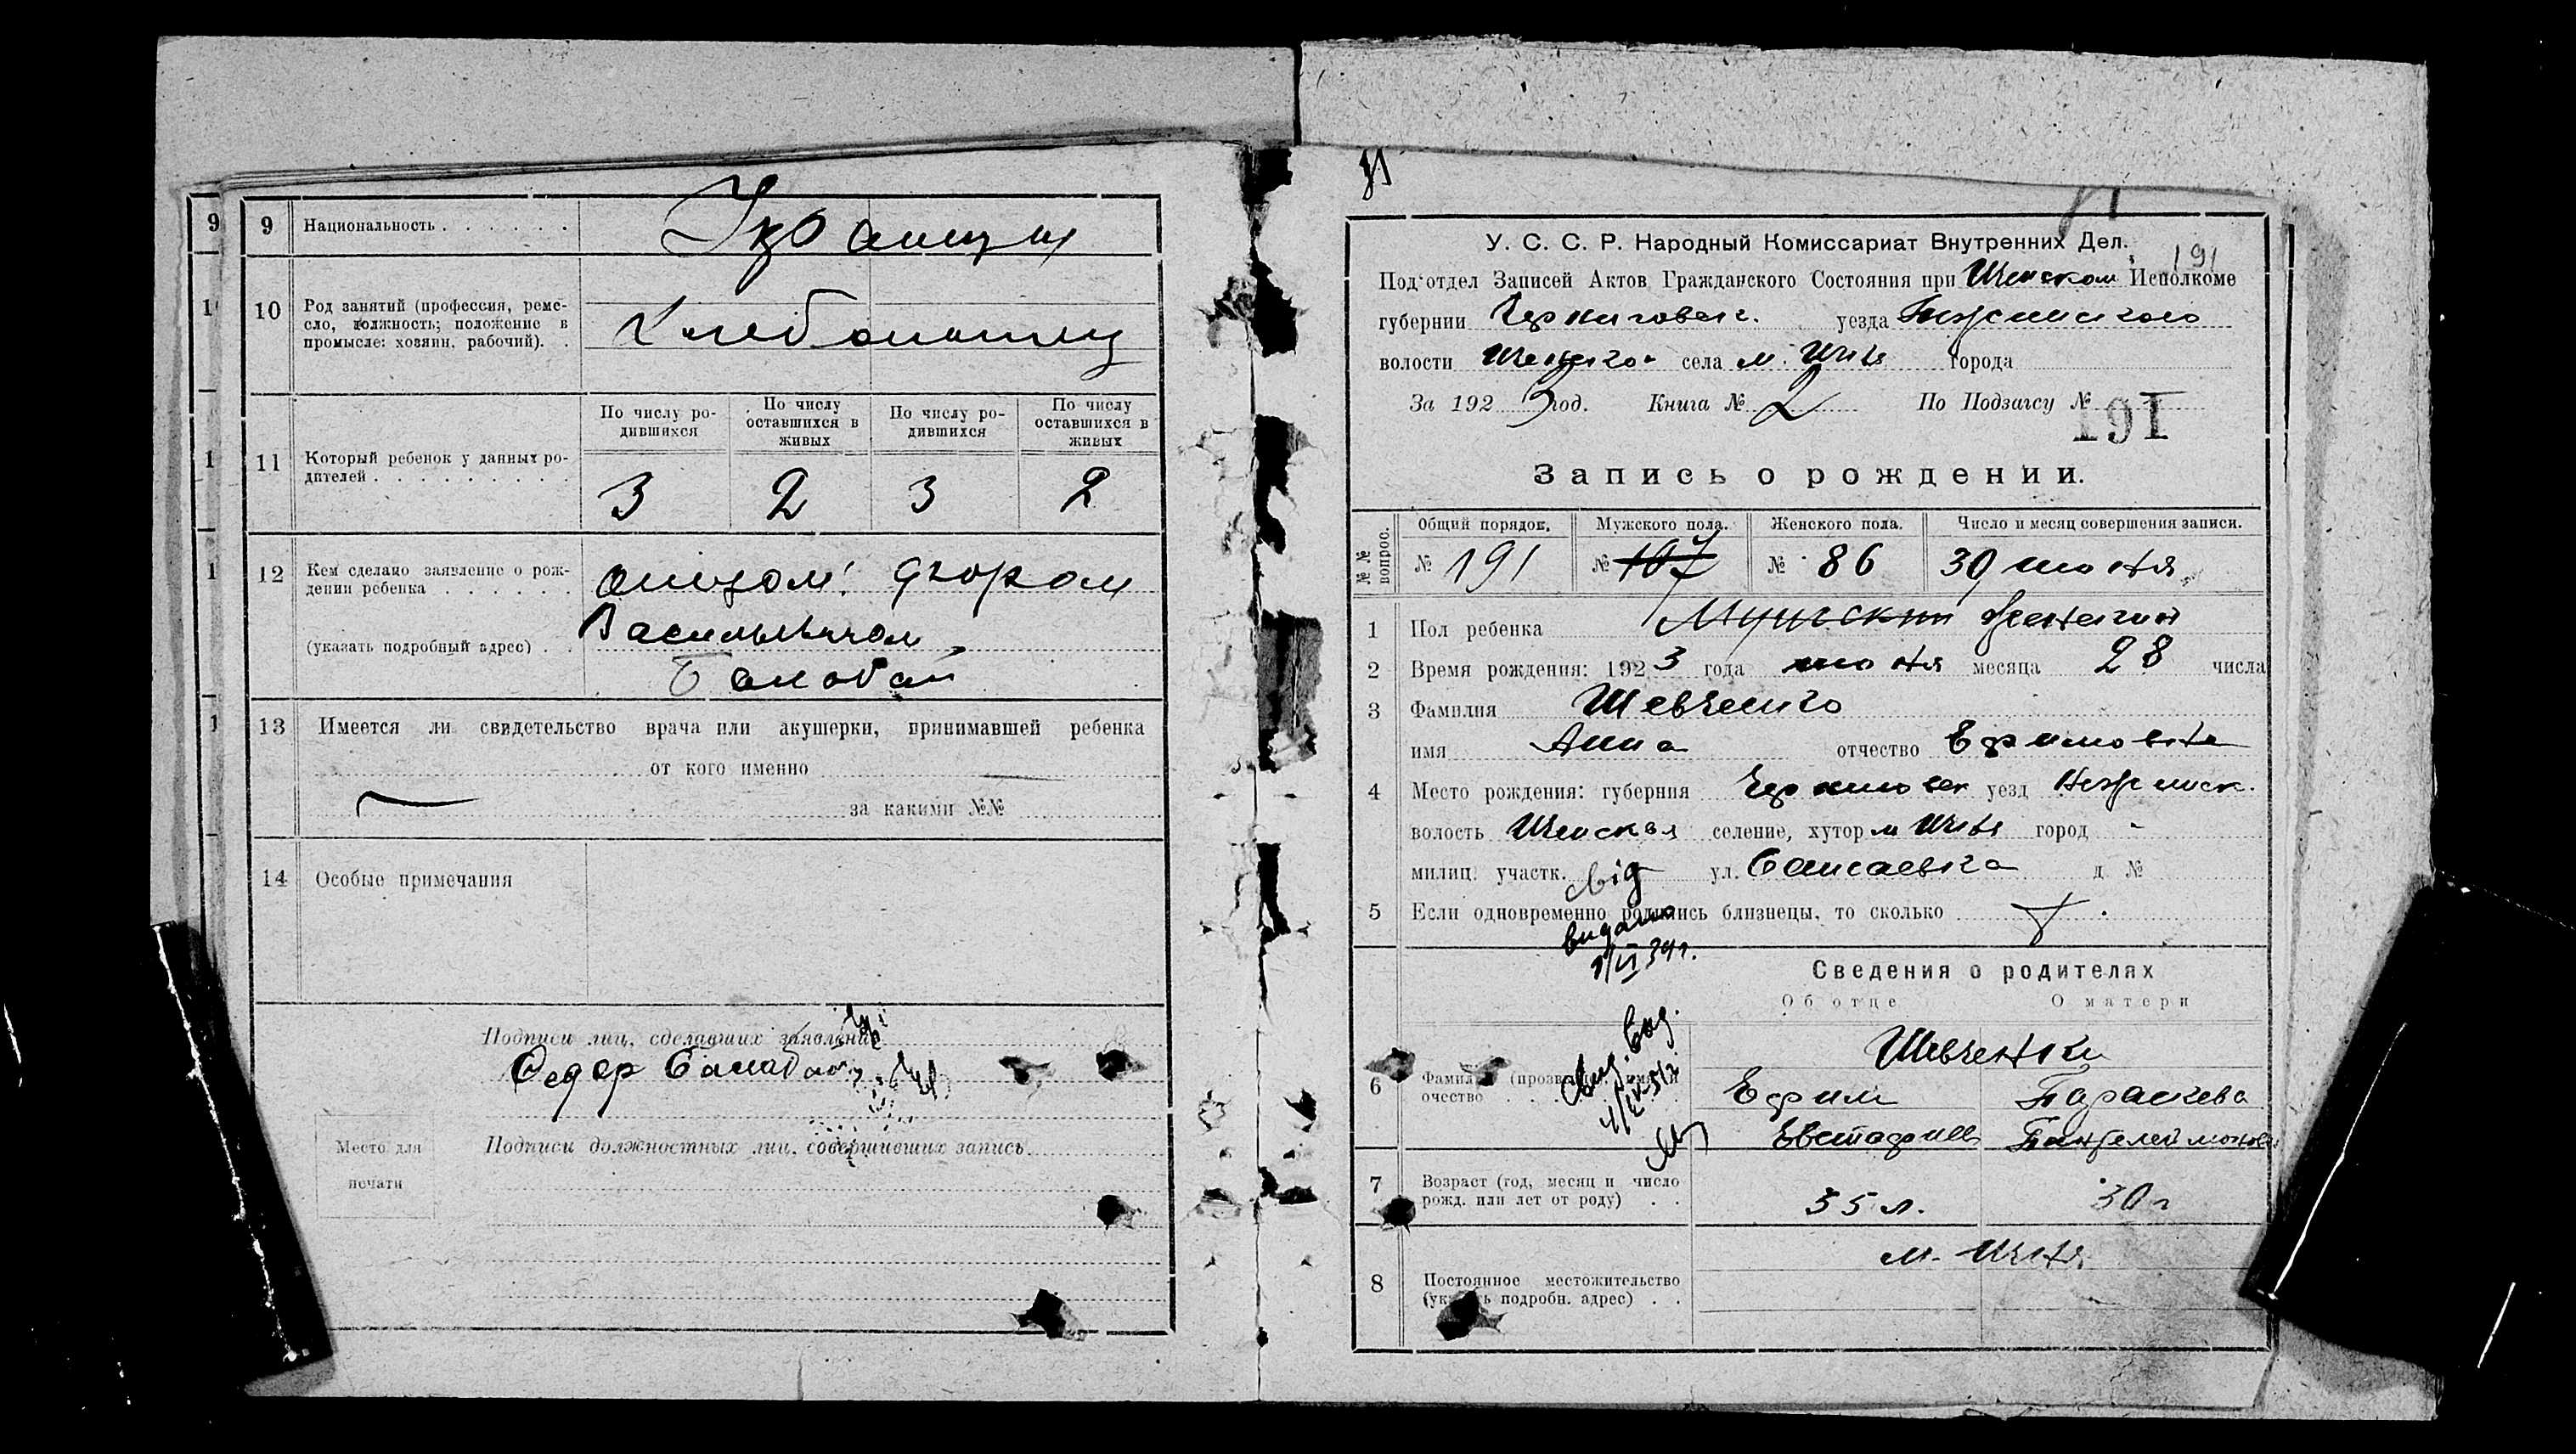 9 Национальность . . . . . . Украинцы
10 Род занятий (профессия, реме-
сло, должность; положение в
промысле: хозяин, рабочий). . Хлебопашец
11 Который ребенок у данных ро-
дителей . . . . . . . . . .
По числу ро-
дившихся
По числу
оставшихся в
живых
По числу ро-
дившихся
По числу
оставшихся в
живых
3 2 3 2
12 Кем сделано заявление о рож-
дении ребенка . . . . . . отцом:
(указать подробный адрес) . . Васильевичом
13 Имеется ли свидетельство врача или акушерки, принимавшей ребенка
от кого именно
за какими №№
14 Особые примечания
Подписи лиц, сделавших заявление
Федор
Место для
печати
Подписи должностных лиц, совершивших запись
191
У. С. С. Р. Народный Комиссариат Внутренних Дел.
Под'отдел Записей Актов Гражданского Состояния при Иченском Исполкоме
губернии Черниговск. уезда Нежинского
волости Иченской села м. Ичня города
За 192 3 год. Книга № 2 По Подзагсу №
191
Запись о рождении.
№№ вопрос.
Общий порядок. Мужского пола. Женского пола. Число и месяц совершения записи.
№ 191 № 107 № 86 30 июня
1 Пол ребенка Мужский женский
2 Время рождения: 192 3 года июня месяца 28 числа
3 Фамилия Шевченко
имя Анна отчество Ефимовна
4 Место рождения: губерния Черниговск уезд Нежинск.
волость Иченская селение, хутор м Ичня город -
милиц. участк. ул. д №
5 Если одновременно родились близнецы, то сколько
від
видано
Сведения о родителях
Об отце О матери
6 Фамилия (прозвище), имя и
очество . . .
Шевченки
Ефим Параскева
Евстафиев Пантелеймонов
7 Возраст (год, месяц и число
рожд. или лет от роду) . . 35 л. 30 л
8 Постоянное местожительство
(указать подробн. адрес) . . м. Ичня